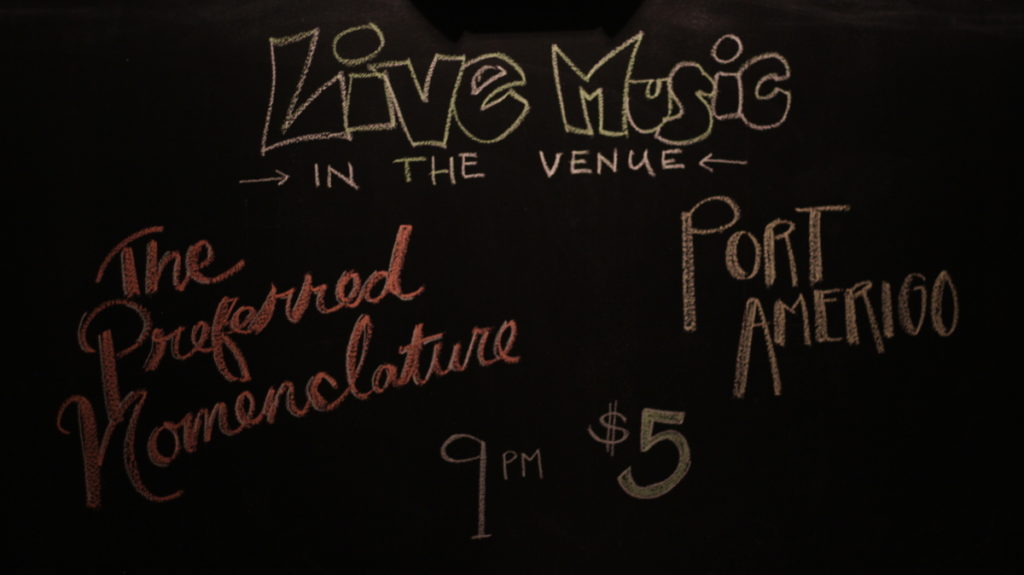 Live Music
→ IN THE VENUE ←
The
Preferred
Nomenclature
PORT
AMERIGO
9 PM
$5